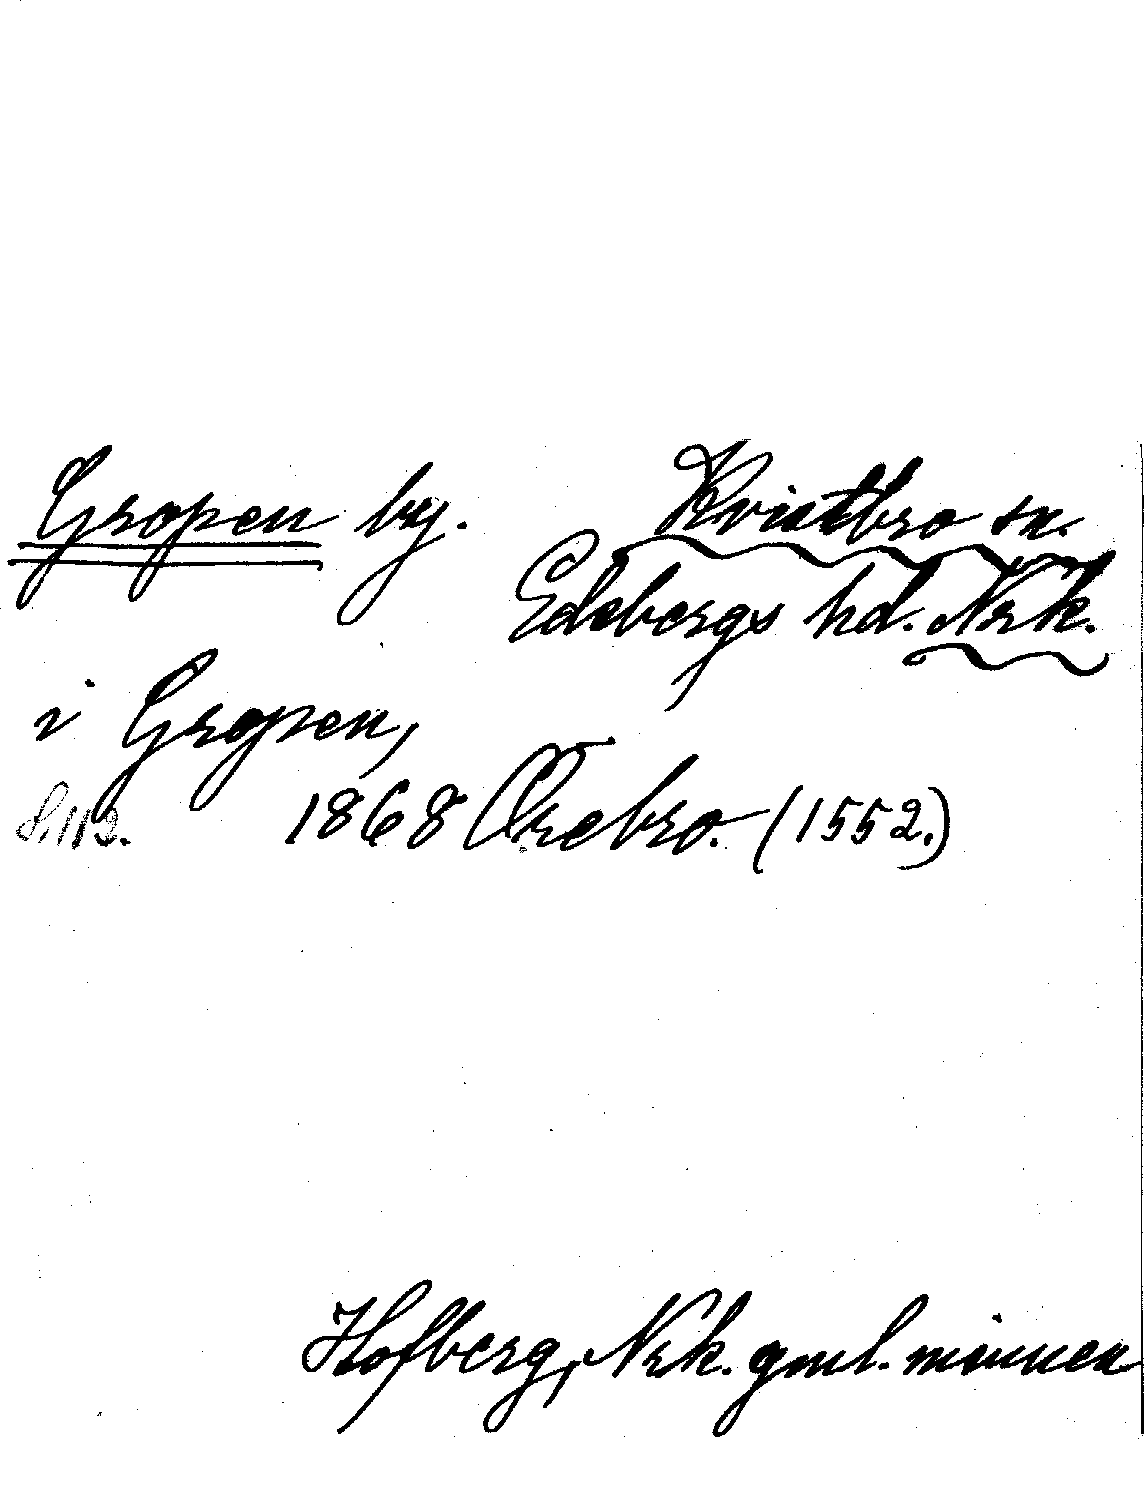 Gropen by. Kvistbro sn.
Edsbergs hd. Nrk.
i Gropen,
S. 112. 1868 Örebro. (1552.)
Hofberg, Nrk. gml. minnen